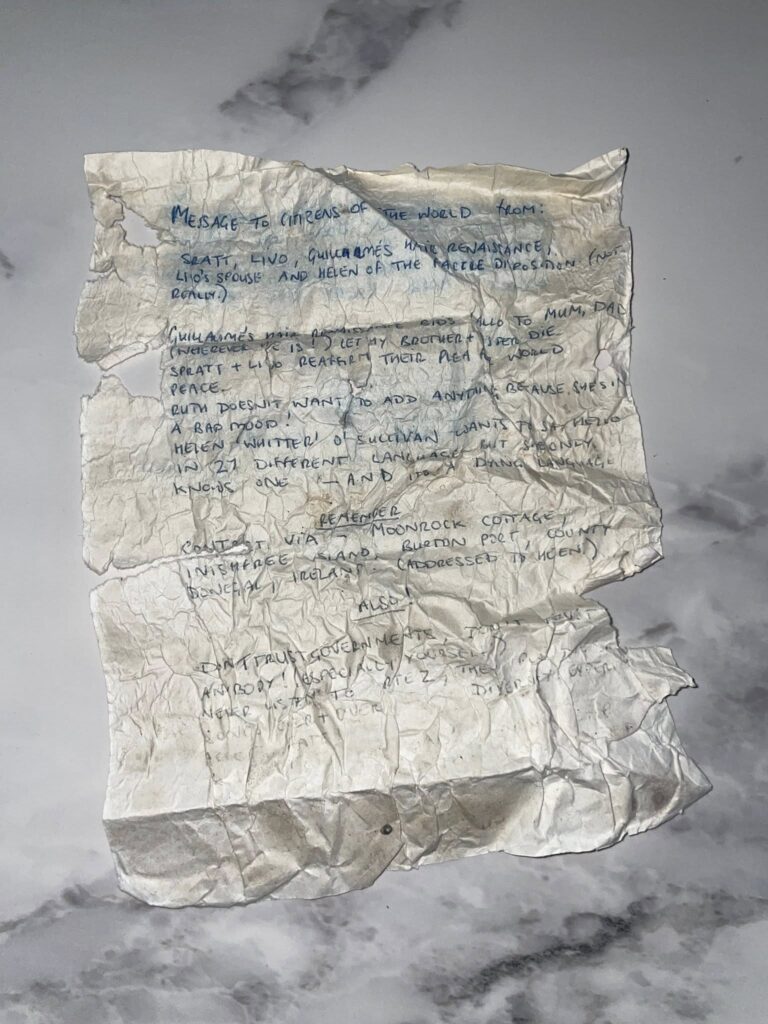 MESSAGE TO CITIZENS OF THE WORLD from:
SPATT, LIVO, GUILLAUME'S HAIR RENAISSANCE,
LIVO'S SPOUSE AND HELEN OF THE FACILE DISPOSITION. (NOT
REALLY.)
GUILLAUME'S HAIR RENAISSANCE BIDS ALLO TO MUM, DAD
(WHEREVER HE IS!) LET MY BROTHER + SISTER DIE
SPATT + LIVO REAFFIRM THEIR PLEA WORLD
PEACE.
RUTH DOESN'T WANT TO ADD ANYTHING BECAUSE SHE'S IN
A BAD MOOD!
HELEN 'WHITTER' O'SULLIVAN WANTS TO SAY HELLO
IN 27 DIFFERENT LANGUAGES BUT SHE ONLY
KNOWS ONE - AND A DYING LANGUAGE
REMEMBER
CONTACT VIA - MOONROCK COTTAGE,
INISHFREE ISLAND, BURTON PORT, COUNTY
DONEGAL, IRELAND. (ADDRESSED TO HELEN!)
ALSO!
DON'T TRUST GOVERNMENTS, DON'T TRUST
ANYBODY! (ESPECIALLY YOURSELF)
NEVER LISTEN TO RTE 2, THEY
OVER